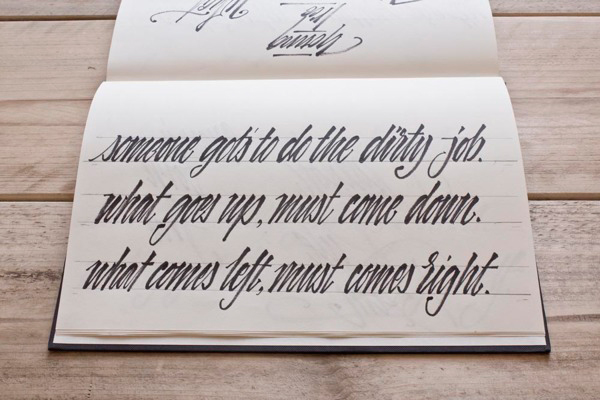 someone gots to do the dirty job.
what goes up, must come down.
what comes left, must comes right.